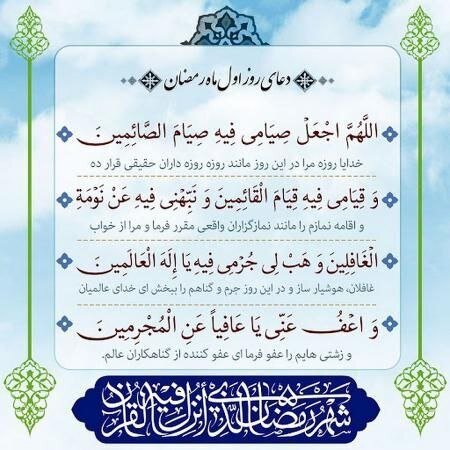 دعای روز اول ماه رمضان
اللَّهُمَّ اجْعَلْ صِیَامِی فِیهِ صِیَامَ الصَّائِمِینَ
خدایا روزه مرا در این روز مانند روزه روزه داران حقیقی قرار ده
وَ قِیَامِی فِیهِ قِیَامَ الْقَائِمِینَ وَ نَبِّهْنِی فِیهِ عَنْ نَوْمَةِ
و اقامه نمازم را مانند نمازگزاران واقعی مقرر فرما و مرا از خواب
الْغَافِلِینَ وَ هَبْ لِی جُرْمِی فِیهِ یَا إِلَهَ الْعَالَمِینَ
غافلان، هوشیار ساز و در این روز جرم و گناهم را ببخش ای خدای عالمیان
وَ اعْفُ عَنِّی یَا عَافِیاً عَنِ الْمُجْرِمِینَ
و زشتی هایم را عفو فرما ای عفو کننده از گناهکاران عالم.
شهر رمضان الذی أنزل فیه القرآن